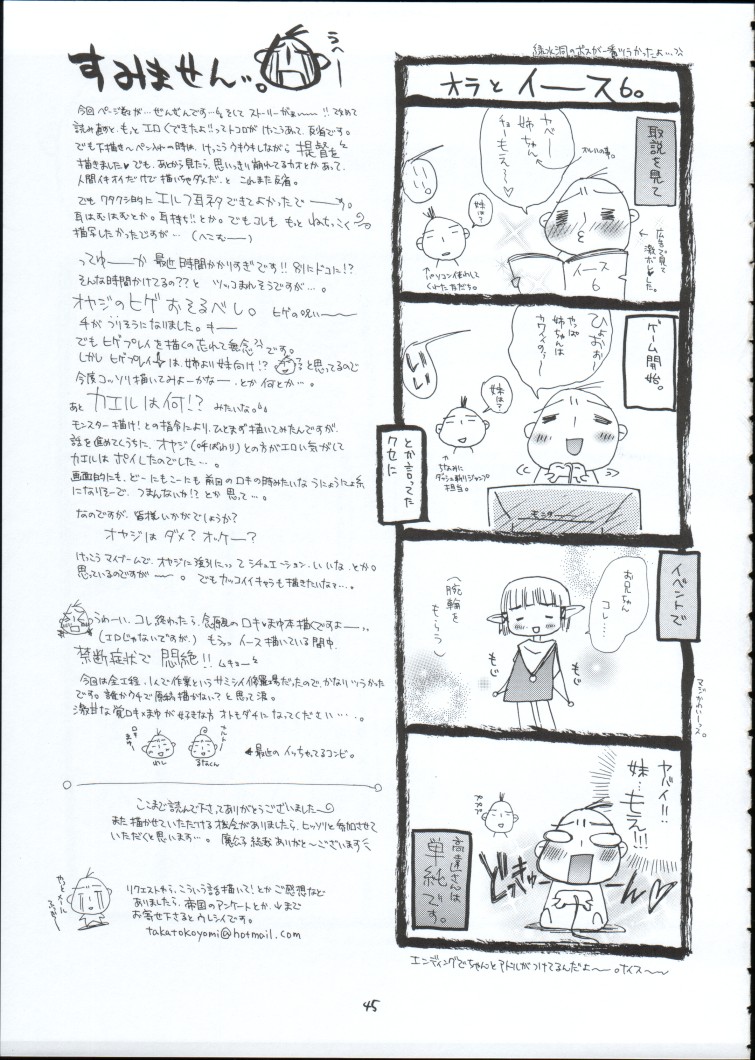 すみません…。
うへー
今回ページ数が…ぜんぜんです…そしてストーリーがぁ〜〜!! 改めて
読み直すと、もっとエロくできたよ!!ってトコロがけっこうあって、反省です。
でも下描き〜ペン入れの時は、けっこうウキウキしながら提督を
描きました♥でも、あとから見たら、思いっきり崩れてるカオとかあって、
人間イキオイだけで描いちゃダメだ。と これまた反省。
でもワタクシ的にエルフ耳ネタできてよかったで――す。
耳はむはむとか。耳持ち!!とか。でもコレも もっと ねちっこく
描写したかったですが…(へこむ――)
ってゆ――か 最近時間かかりすぎです!! 別にドコに!?
そんな時間かけてるの?? と ツッコまれそうですが…。
オヤジのヒゲ おそるべし。 ヒゲの呪い〜〜〜
手がうりそうになりました。キ――
でもヒゲプレイを描くの忘れて無念です。
しかし ヒゲプレイは、姉より妹向け!? と思ってるので
今度コッソリ描いてみよーかなー…とか何とか…。
あと カエルは何!? みたいな。
モンスター描け!との指令により、ひとまず描いてみたんですが、
話を進めてくうちに、オヤジ(呼ばわり)との方がエロい気がして
カエルは ポイしたのでした…。
画面的にも、どーにもこーにも 前回のロキの時みたいなうにょうにょ系
になりそーで、つまんないか!?とか 思って…。
なのですが、皆様いかがでしょうか?
オヤジはダメ? オッケー?
けっこうマイブームで、オヤジに強引にってシチュエーション、いいな。とか。
思っているのですが――。 でもカッコイイキャラも描きたいなァ…。
うわーい、コレ終わたら、念願のロキ×まゆ本描くですよ――…
(エロじゃないですが。) もうっ イース描いている間中、
禁断症状で 悶絶!! ムキョー
今回は全工程、1人で作業というサミシイ修羅場だったので、かなりツラかった
です。誰かウチで原稿描かない? と思って涙。
激甘な覚ロキ×まゆが好きな方 オトモダチになってください…。
←最近のイッちゃってるコンビ。
ここまで読んで下さってありがとうございました〜
また描かせていただける機会がありましたら、ヒッソリと参加させて
いただくと思います…。
リクエストやら、こういう話描いて!とか ご感想など
ありましたら、帝国のアンケートとか、↓まで
お寄せ下さるとウレシイです。
takatokoyomi@hotmail.com
オラとイース6。
取説を見て
ヤベー
姉ちゃん
チョーもえ〜〜♥
オルハの事。
いい。
妹は?
広告で見て
激ボレした。
イース
6
ゲーム開始。
ひょおぉー
やっぱ
姉ちゃんは
カワイイのぅ〜
いい
妹は?
ちなみに
ダッシュ斬りジャンプ
担当。
モニター
とか言ってた
クセに
イベントで
お兄ちゃん
コレ…
(腕輪を
もらう)
もじ
もじ
マジかわいーッス。
ヤバイ!!
妹…もえ!!!
どきゅーーん♥
高遠さんは
単純です。
エンディングでちゃんとアドルがつけてるんだよ〜〜。ナイス〜〜
45